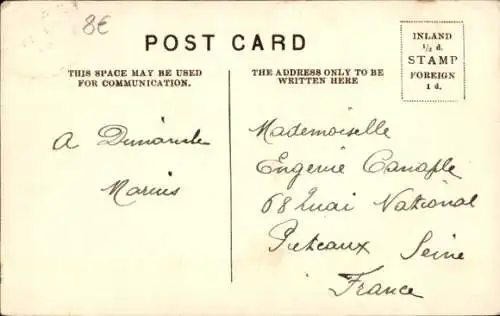 8€
POST CARD
INLAND
½ d.
STAMP
FOREIGN
1 d.
THIS SPACE MAY BE USED
FOR COMMUNICATION.
THE ADDRESS ONLY TO BE
WRITTEN HERE
A Dimanche
Marius
Mademoiselle
Eugenie Canaple
68 Quai National
Puteaux Seine
France